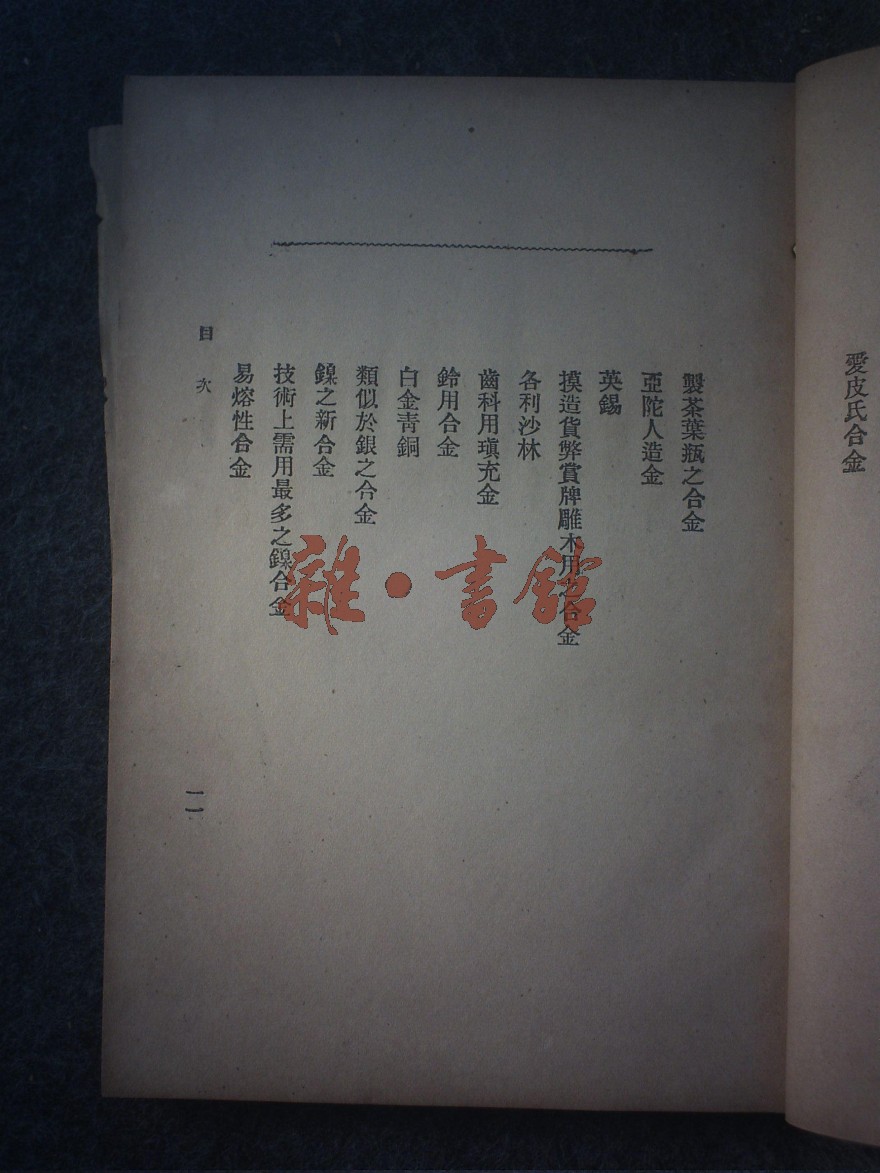 愛皮氏合金
製茶葉瓶之合金
亞陀人造金
英錫
摸造貨弊賞牌雕木用之合金
各利沙林
齒科用瑱充金
鈴用合金
白金靑銅
類似於銀之合金
鎳之新合金
技術上需用最多之鎳合金
易熔性合金
目次
二
雜·書館